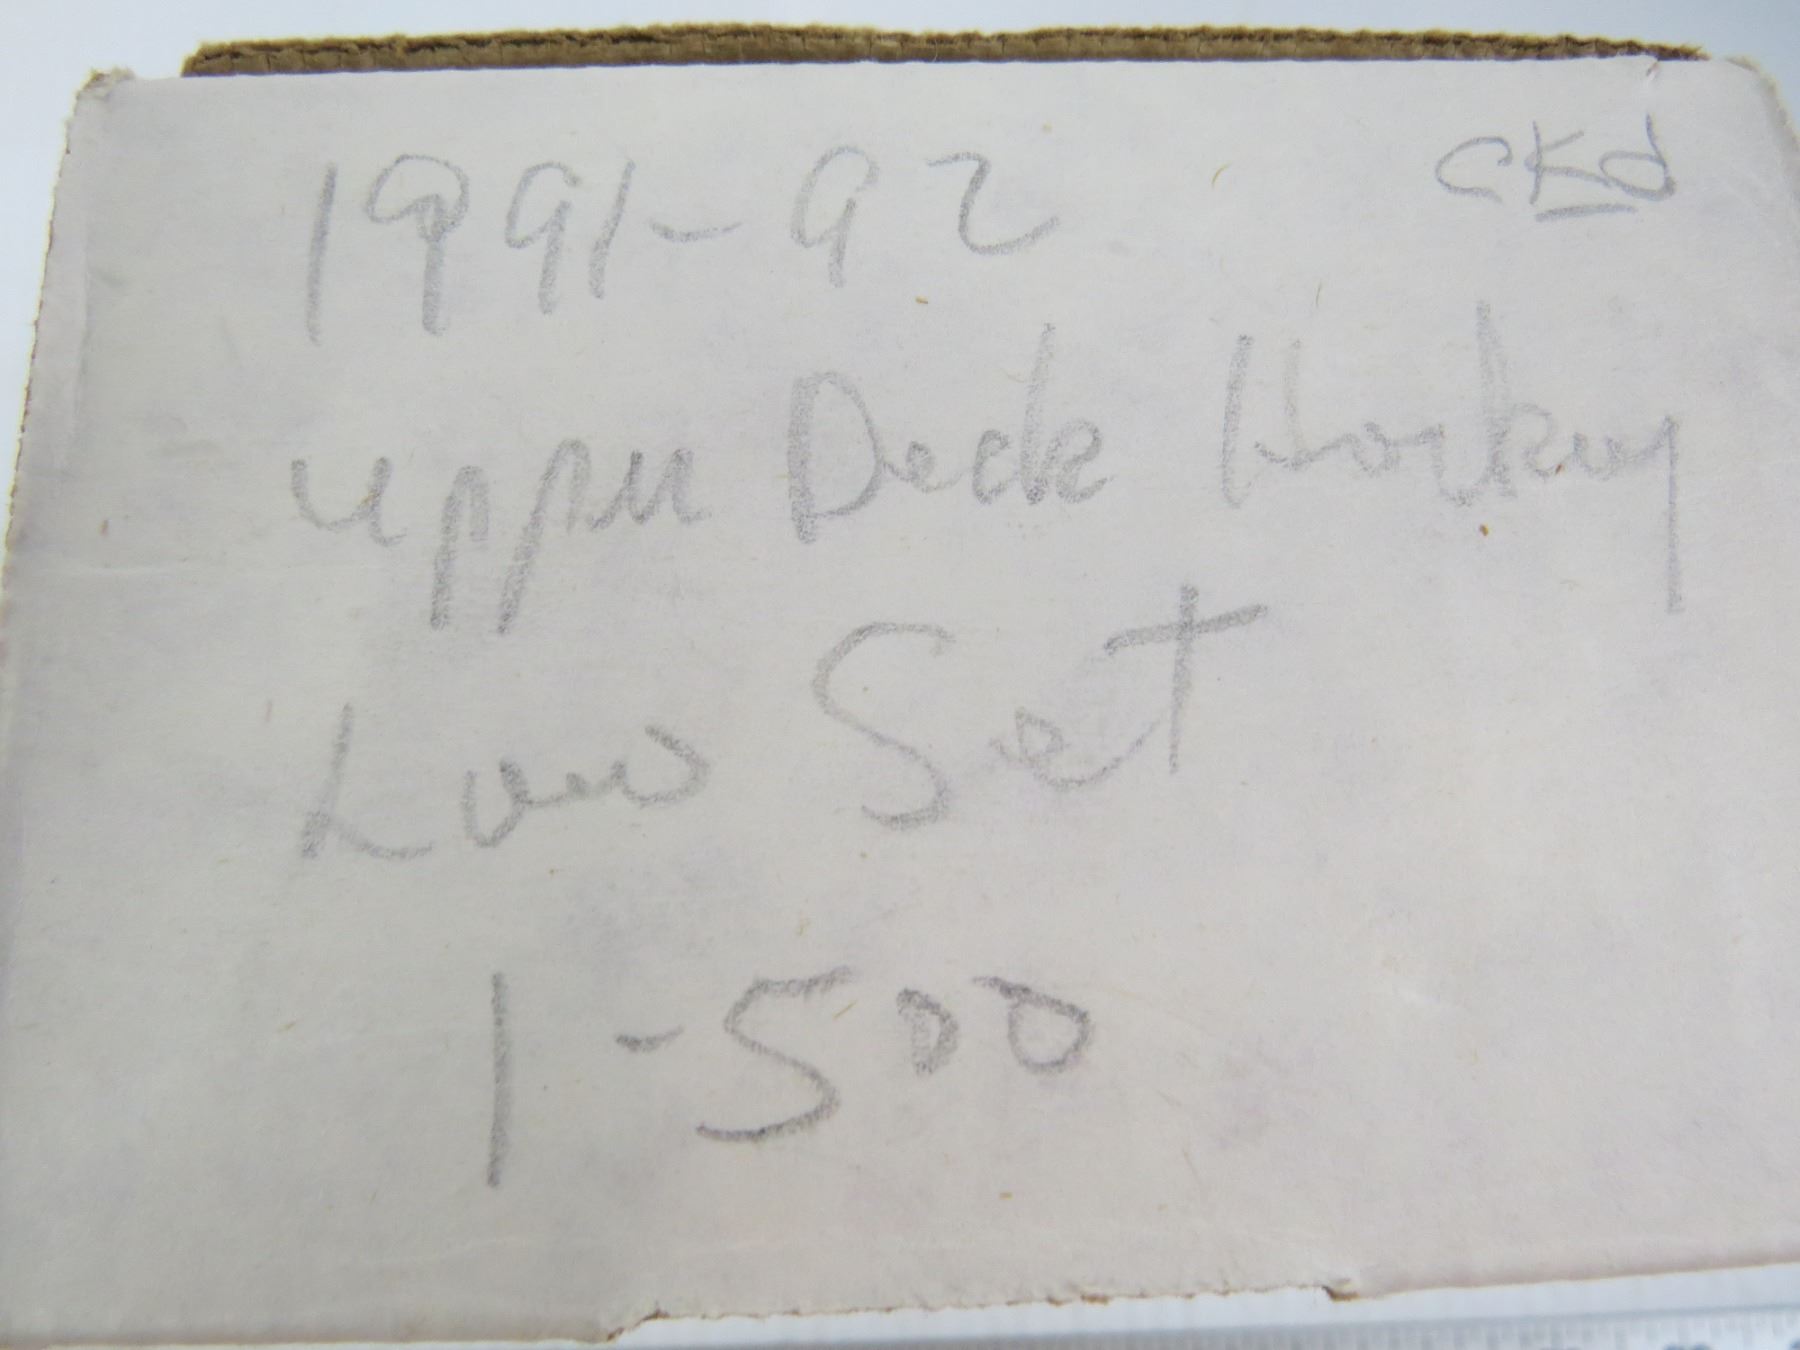 1991-92 CKd
Upper Deck Hockey
Low Set
1-500